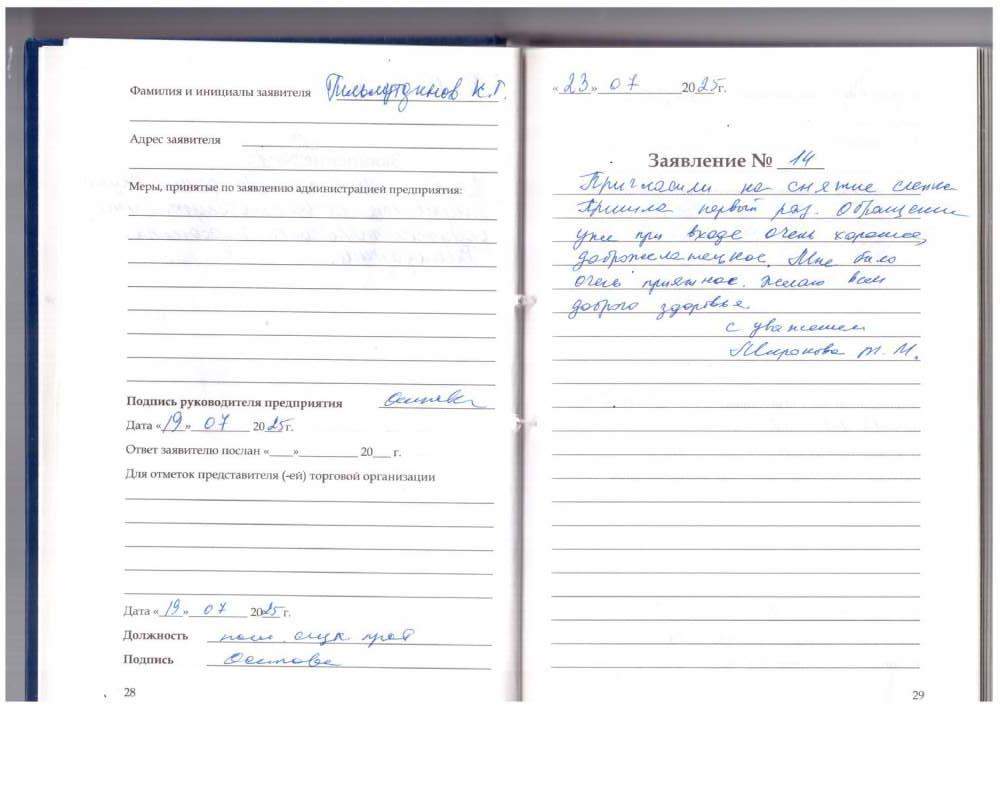 Фамилия и инициалы заявителя Гильмутдинов К.Г.
Адрес заявителя
Меры, принятые по заявлению администрацией предприятия:
Подпись руководителя предприятия
Дата «19» 07 2025г.
Ответ заявителю послан «____»__________ 20___ г.
Для отметок представителя (-ей) торговой организации
Дата «19» 07 2025г.
Должность
Подпись Осипова
28
«23» 07 2025г.
Заявление № 14
Пригласили на снятие слепка
Пришла первый раз. Обращение
уже при входе очень хорошее,
доброжелательное. Мне было
очень приятное. Желаю всем
доброго здоровья.
с уважением
Миронова Т. М.
29